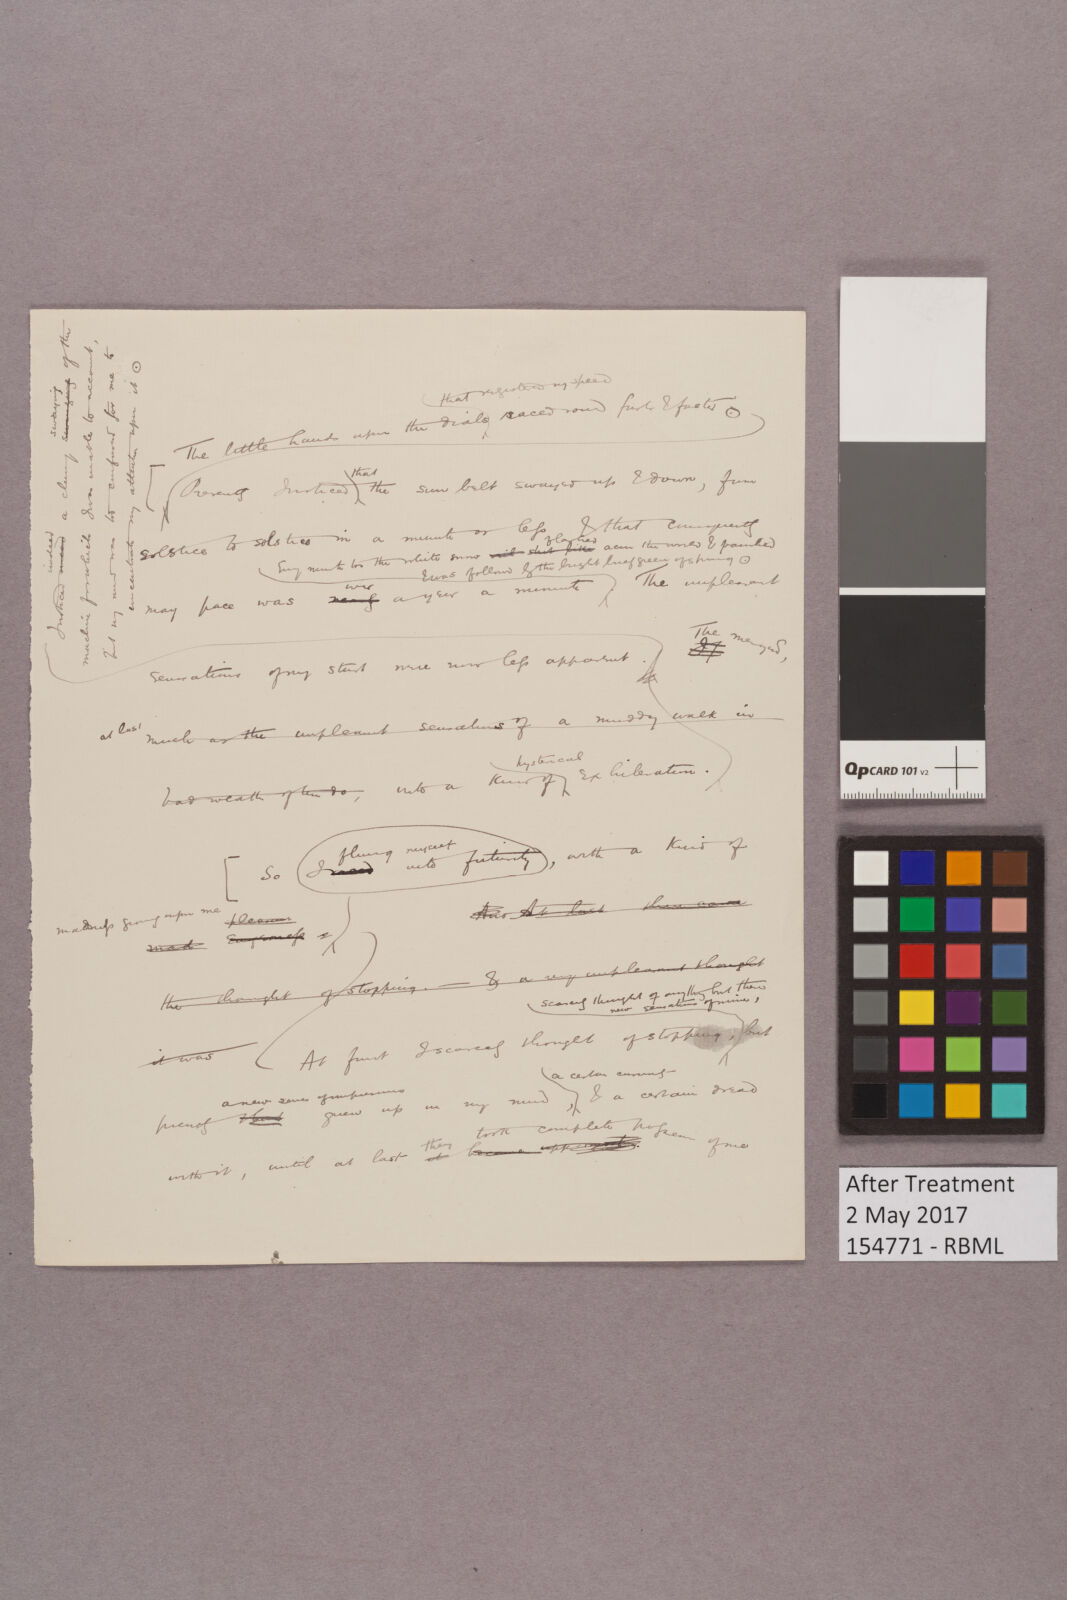 that registered my speed
The little hands upon the dials raced round faster & faster
Presently I noticed that the sun belt swayed up & down, from
solstice to solstice in a minute or less & that consequently
flashed
minute by the white snow across the world & painted
& was followed by the bright green of spring
over
may pace was a year a minute The unpleasant
sensations of my start were now less apparent. The merged,
at last much as the unpleasant sensations of a muddy walk in
hysterical
bad weather often do, into a kind of exhileration.
flung myself
So I into futurity, with a kind of
madness growing upon me pleasure
mad And At last there came
the thought of stopping. — & a very unpleasant thought
scarcely thought of anything but these
new sensations of mine,
it was At first I scarcely thought of stopping, but
a new series of impressions a certain curiosity
grew up in my mind, & a certain dread
they took complete possession
with it, until at last of me
swaying
indeed
I noticed a clumsy swinging of the
machine for which I was unable to account,
but my mind was too confused for me to
concentrate my attention upon it
QpCARD 101 v2
After Treatment
2 May 2017
154771 - RBML